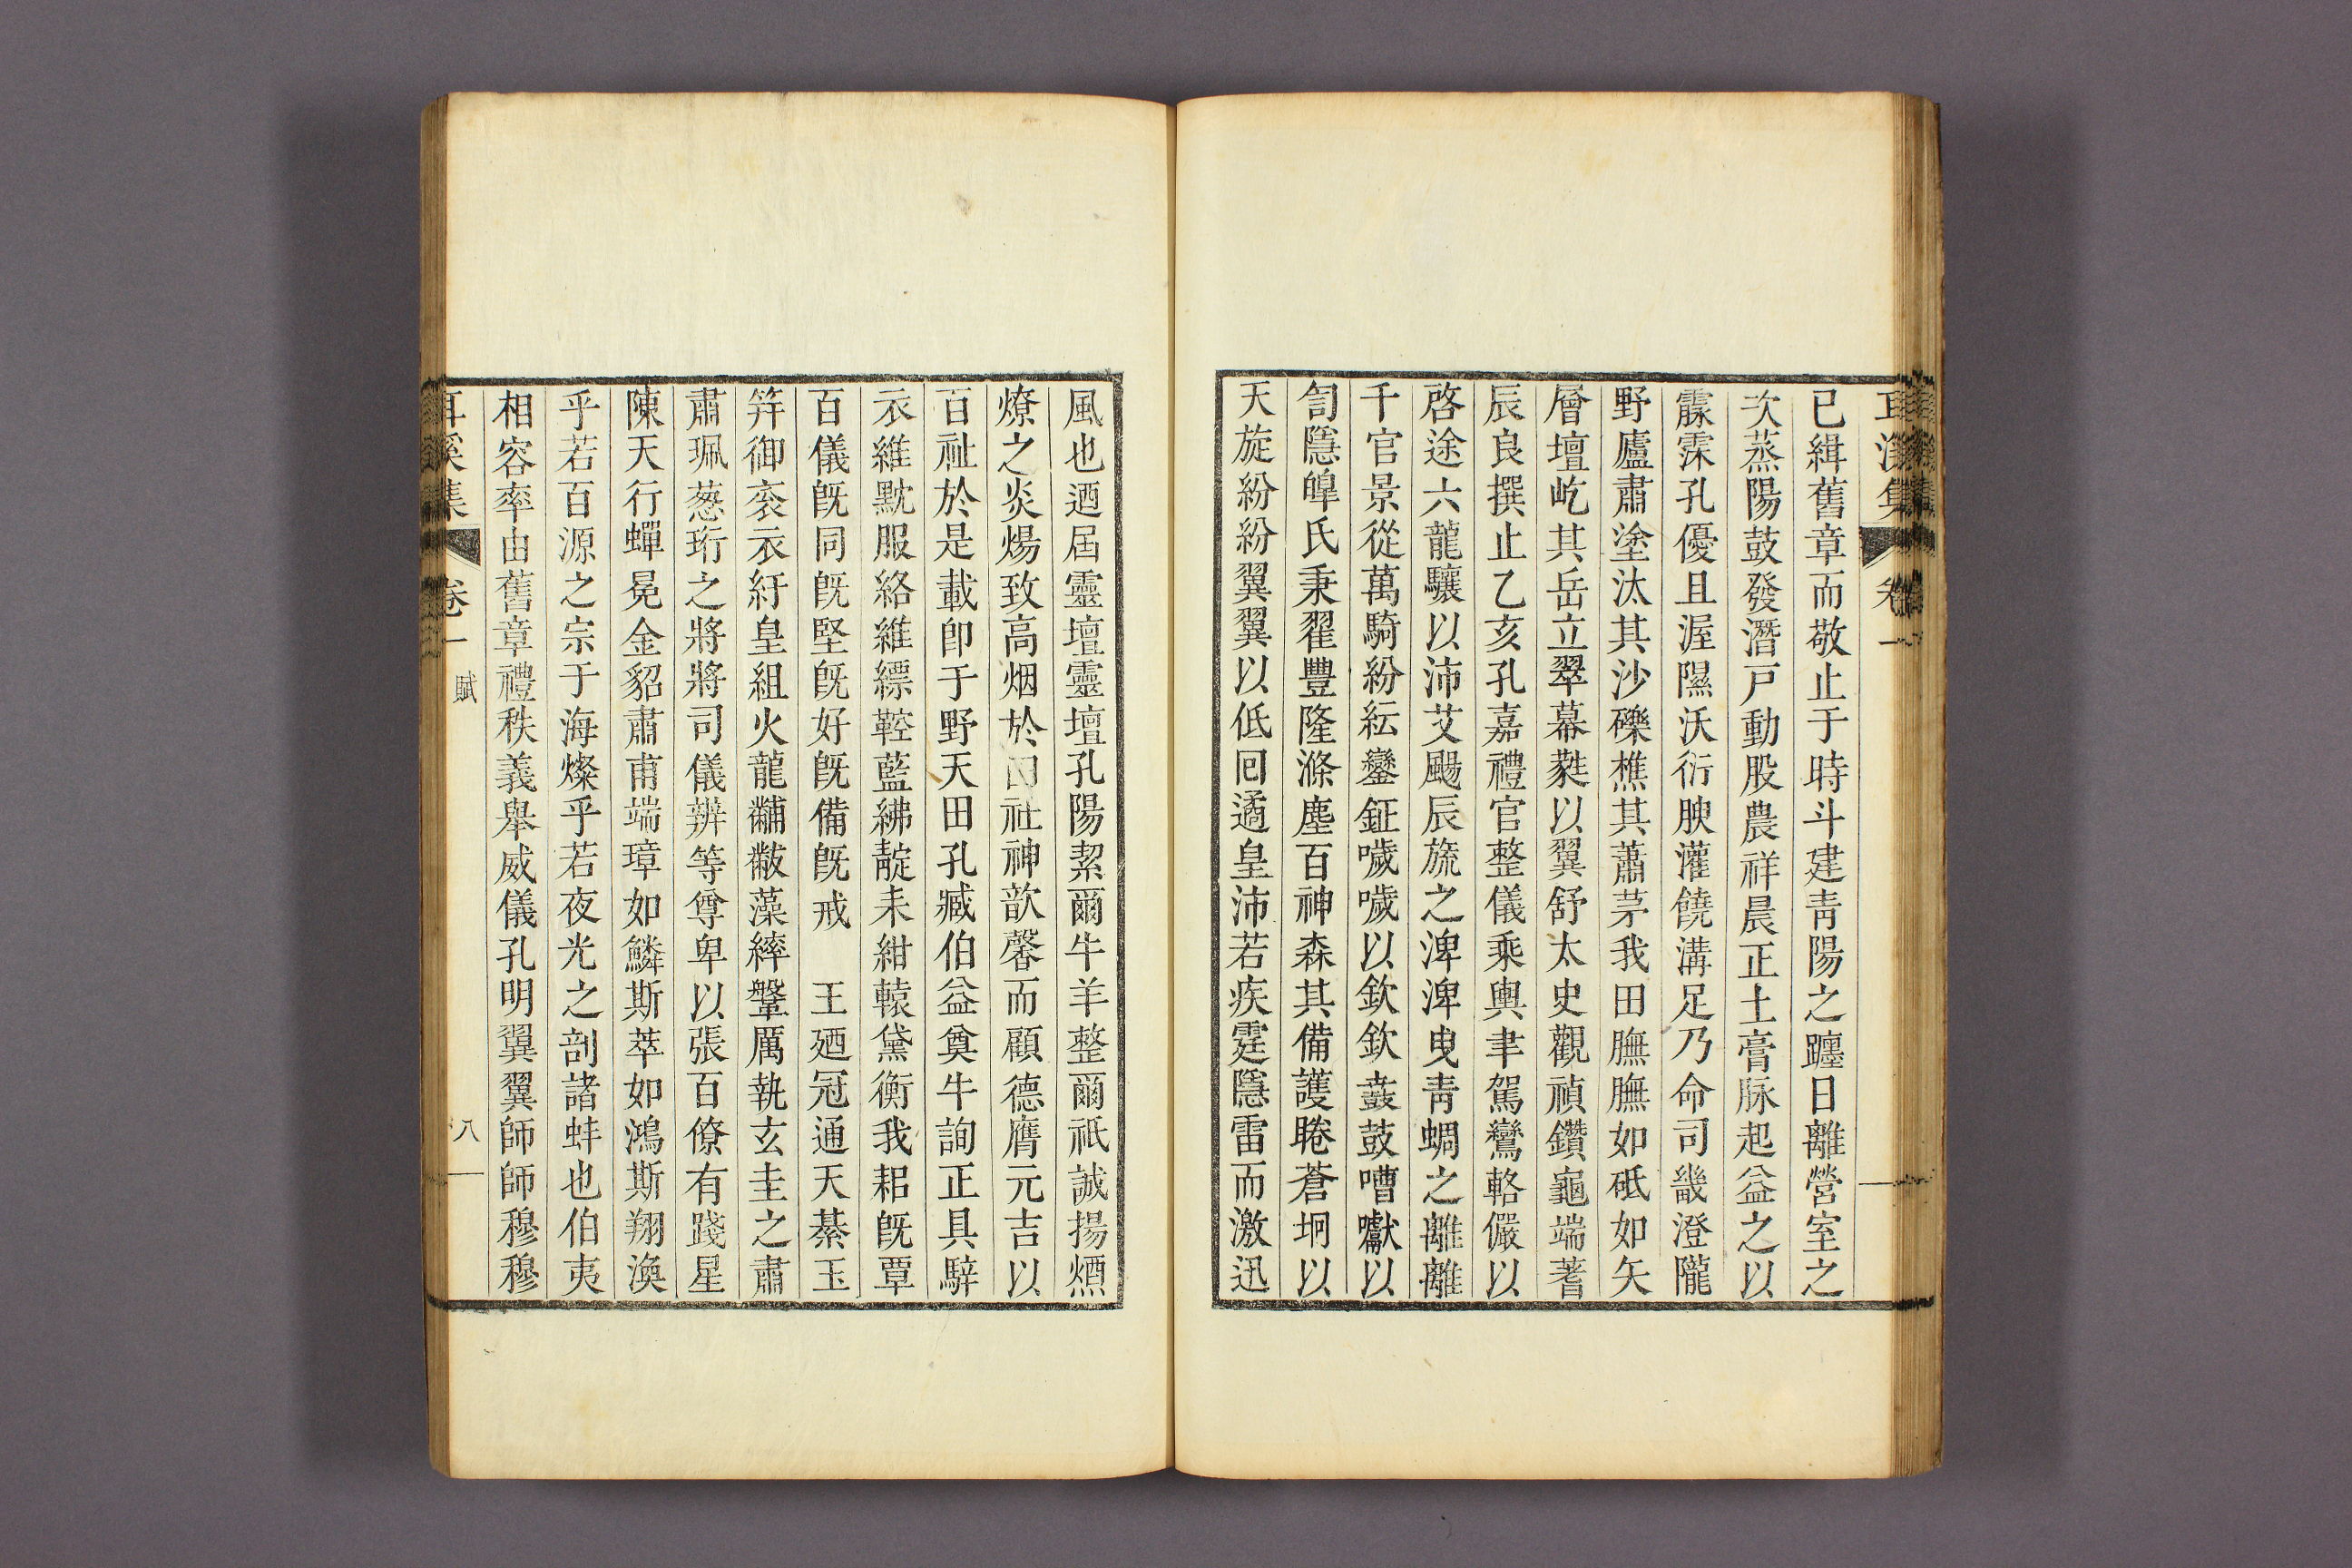 已緝舊章而敬止于時斗建靑陽之躔日離營室之
次蒸陽鼓發潛戶動股農祥晨正土膏脉起益之以
霢霂孔優且渥隰沃衍腴灌饒溝足乃命司畿澄隴
野廬肅塗汰其沙礫樵其蕭茅我田膴膴如砥如矢
層壇屹其岳立翠幕蕤以翼舒太史觀禎鑽龜端蓍
辰良撰止乙亥孔嘉禮官整儀乘輿聿駕鸞輅儼以
啓途六龍驤以沛艾颺辰旒之渒渒曳靑蜩之離離
千官景從萬騎紛紜鑾鉦噦噦以欽欽鼖鼓嘈囐以
訇隱皥氏秉翟豐隆滌塵百神森其備護睠蒼坰以
天旋紛紛翼翼以低回遹皇沛若疾霆隱雷而激迅
風也迺屆靈壇靈壇孔陽絜爾牛羊整爾祇誠揚煙
燎之炎煬致高烟於田社神歆馨而顧德膺元吉以
百祉於是載卽于野天田孔臧伯益奠牛詢正具騂
衣維黕服絡維縹鞚藍紼靛耒紺轅黛衡我耜旣覃
百儀旣同旣堅旣好旣備旣戒 王廼冠通天綦玉
笄御衮衣紆皇組火龍黼黻藻繂鞶厲執玄圭之肅
肅珮葱珩之將將司儀辨等尊卑以張百僚有踐星
陳天行蟬冕金貂肅甫端璋如鱗斯萃如鴻斯翔渙
乎若百源之宗于海燦乎若夜光之剖諸蚌也伯夷
相容率由舊章禮秩義舉威儀孔明翼翼師師穆穆
耳溪集 卷一 賦 八